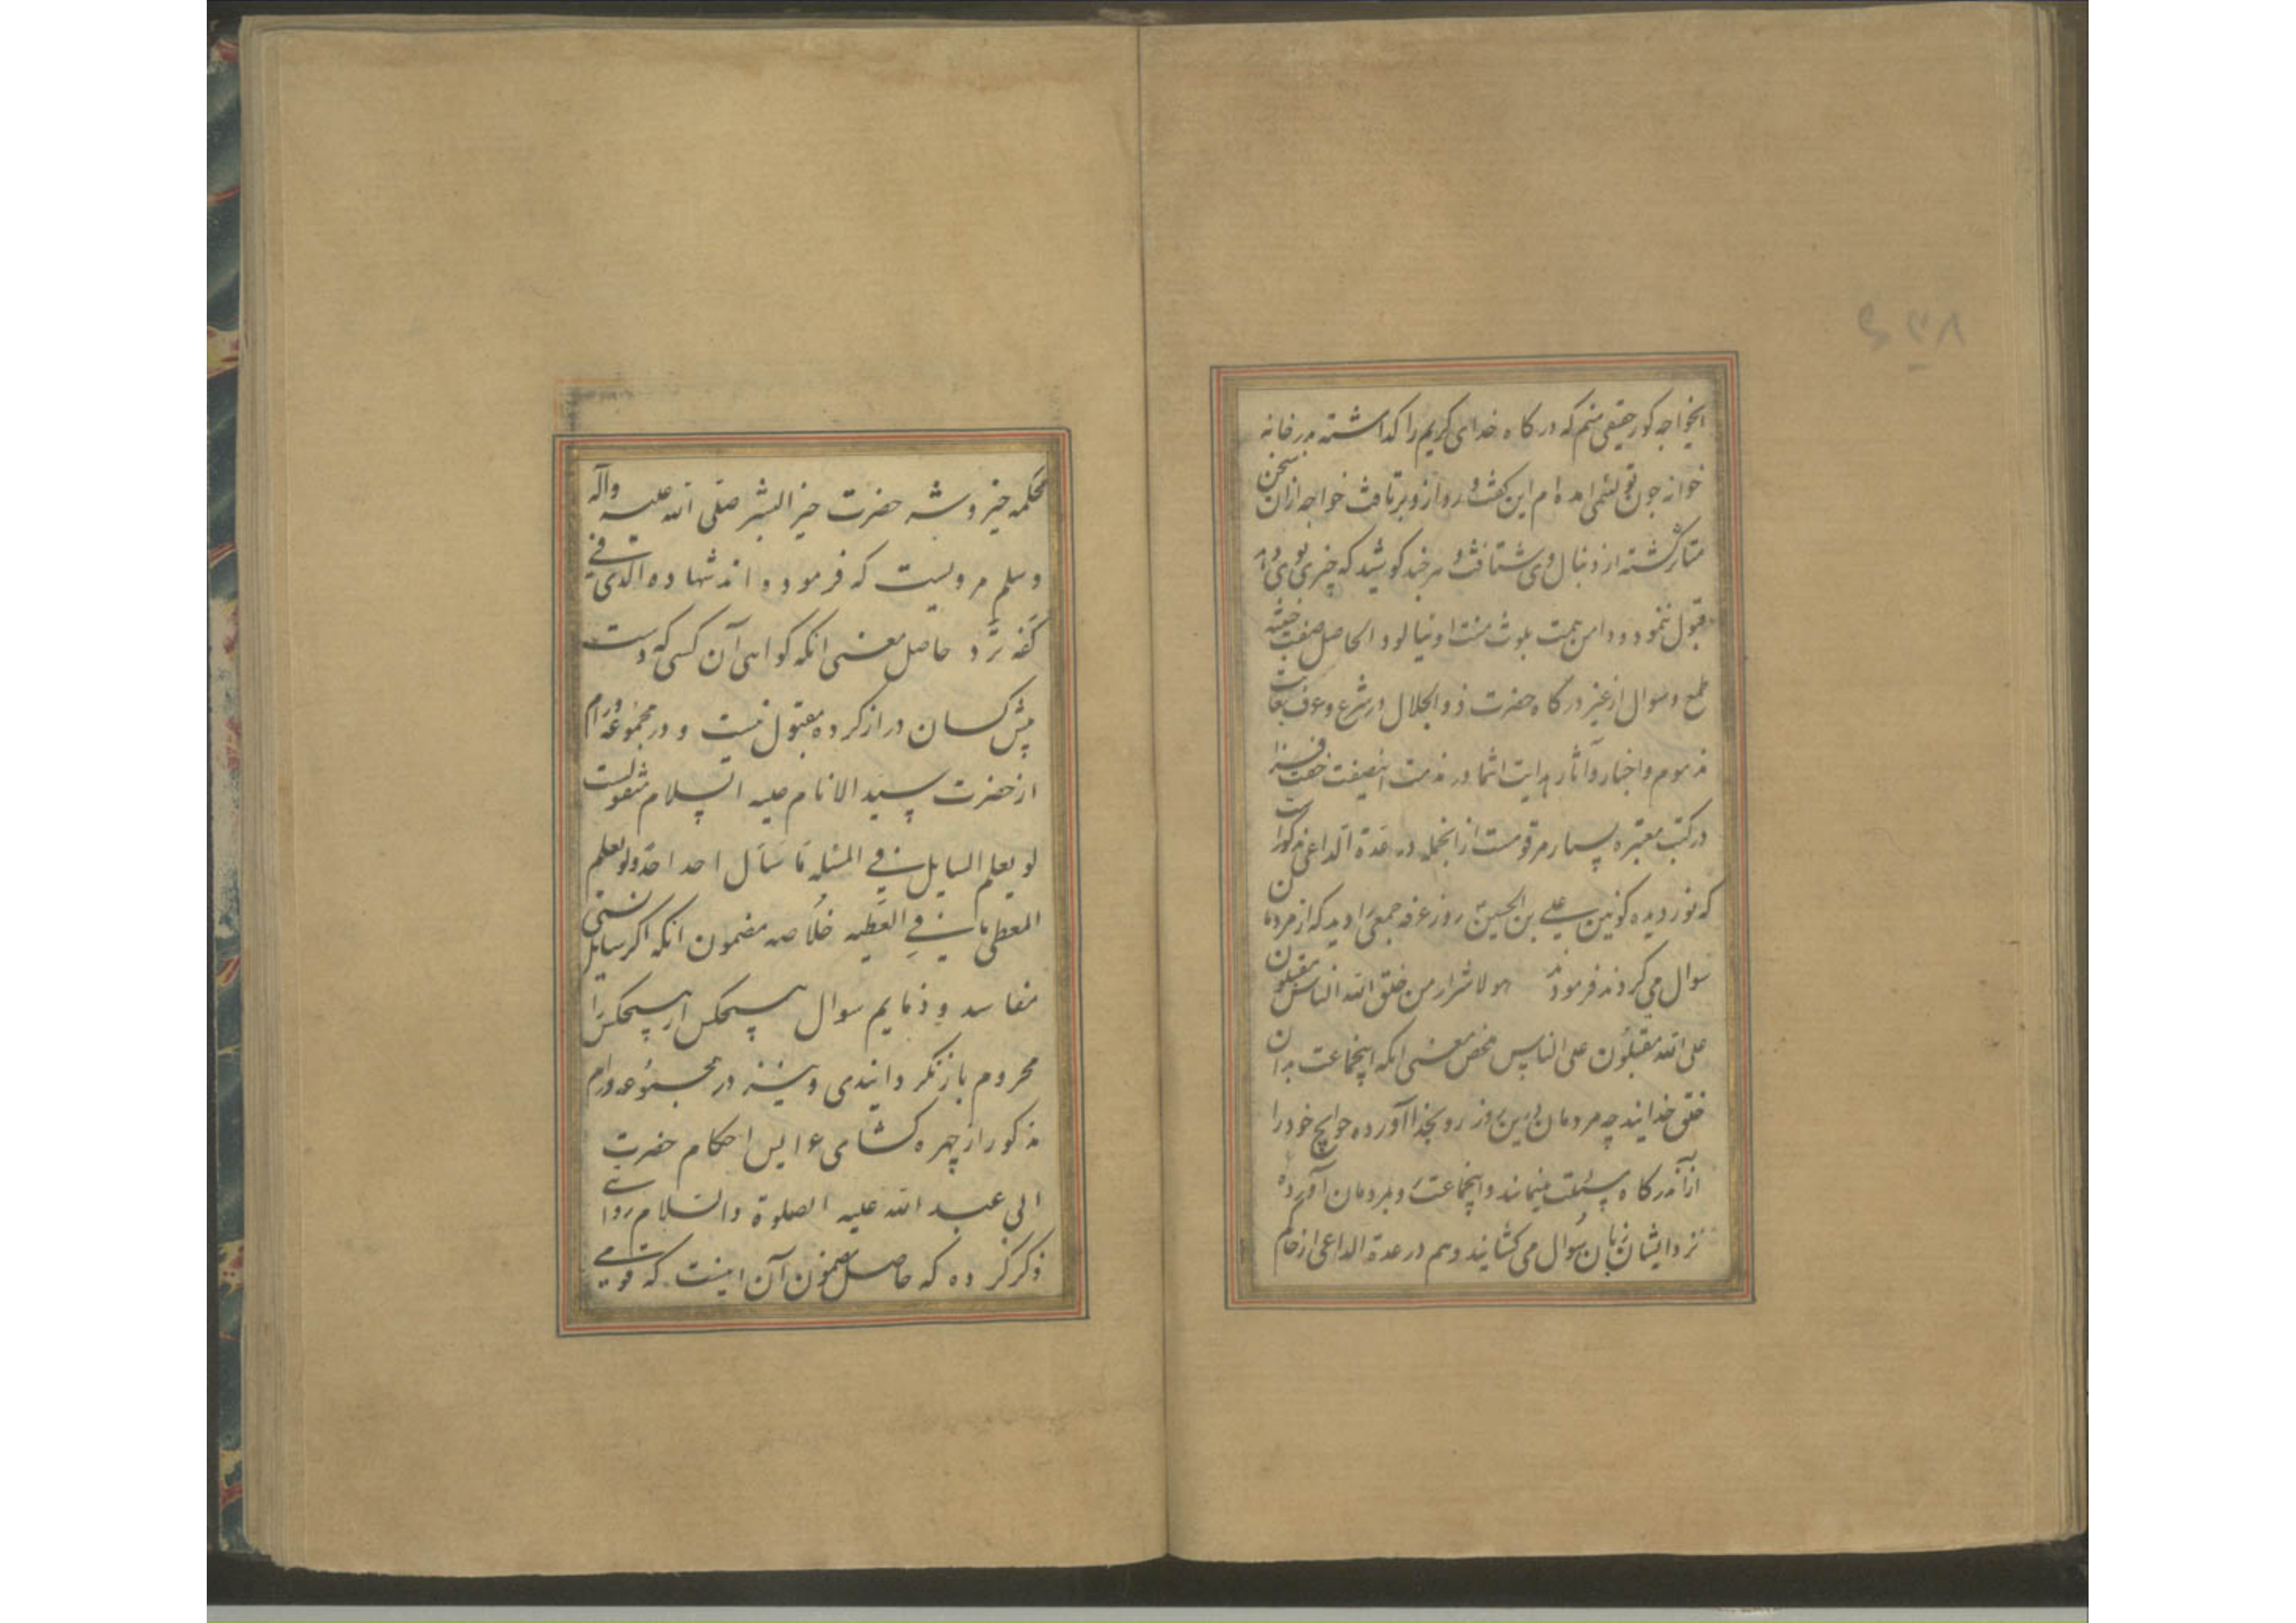 ایخواجه کور حقیقی منم که درگاه خدای کریم را گذاشته بدر خانه
خوانه چون تو لئیمی امده ام این گفت و رو از و برتافت خواجه ازان سخن
متاثر گشته از دنبال وی شتافت و هر چند کوشید که چیزی بوی دهد
قبول ننمود و دامن همت بلوث منت او نیالود الحاصل صفت
طمع و سوال از غیر درگاه حضرت ذو الجلال در شرع و عرف بغایت
مذموم و اخبار و آثار هدایت انتما در مذمت اینصفت خفت فزا
در کتب معتبره بسیار مرقومست از انجمله در عدة الداعی مذکور است
که نور دیده کونین علی بن الحسین روز عرفه جمعی را دید که از مردمان
سوال می کردند فرمودند هولا شرار من خلق الله الناس مقبلون
علی الله مقبلون علی الناس محض معنی انکه اینجماعت بدان
خلق خدایند چه مردمان درین روز رو بخدا آورده حوایج خود را
از آن درگاه مسئلت مینمایند و اینجماعت رو بمردمان آورده
نزد ایشان زبان سوال می گشایند و هم در عدة الداعی از حاکم
محکمه خیر و شر حضرت خیر البشر صلی الله علیه وآله
وسلم مرویست که فرمودند شهاده الذی فی
کفه ترد حاصل معنی انکه گواهی آن کسی که دست
پیش کسان دراز کرده مقبول نیست و در مجموعه ورام
از حضرت سید الانام علیه السلام منقولست
لو یعلم السایل ما فی المسئله ما سأل احد احدا ولو یعلم
المعطی ما فی العطیه خلاصه مضمون انکه اگر سایل
مفاسد و ذمایم سوال هیچکس از هیچکس
محروم باز نگردانیدی و نیز در مجموعه ورام
مذکور از چهره گشای عرایس احکام حضرت
ابی عبد الله علیه الصلوة والسلام روایتی
ذکر کرده که حاصل مضمون آن اینست که قومی